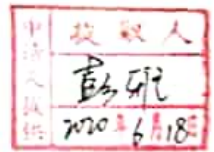 申请人提供
投诉人
彭雅
2020年6月18日